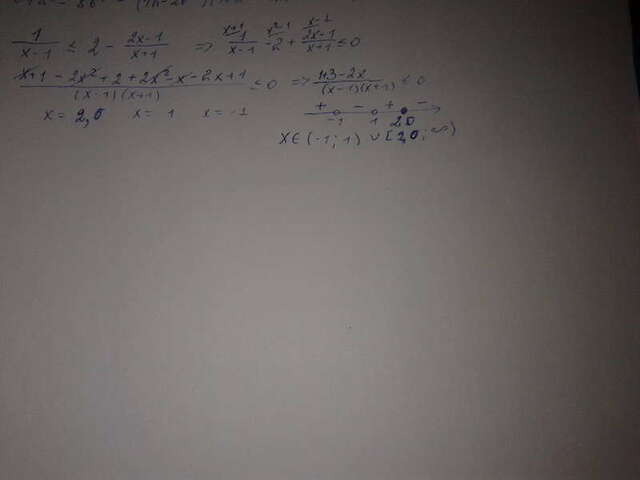 1/(x-1) ≤ 2 - (2x-1)/(x+1) => 1/(x-1) - 2 + (2x-1)/(x+1) ≤ 0
(x+1 - 2x² + 2 + 2x² - x - 2x + 1)/((x-1)(x+1)) ≤ 0 => (+3-2x)/((x-1)(x+1)) ≤ 0
x = 2,0 x = 1 x = -1
+ - + -
-1 1 2,0
x ∈ (-1; 1) ∪ [2,0; ∞)